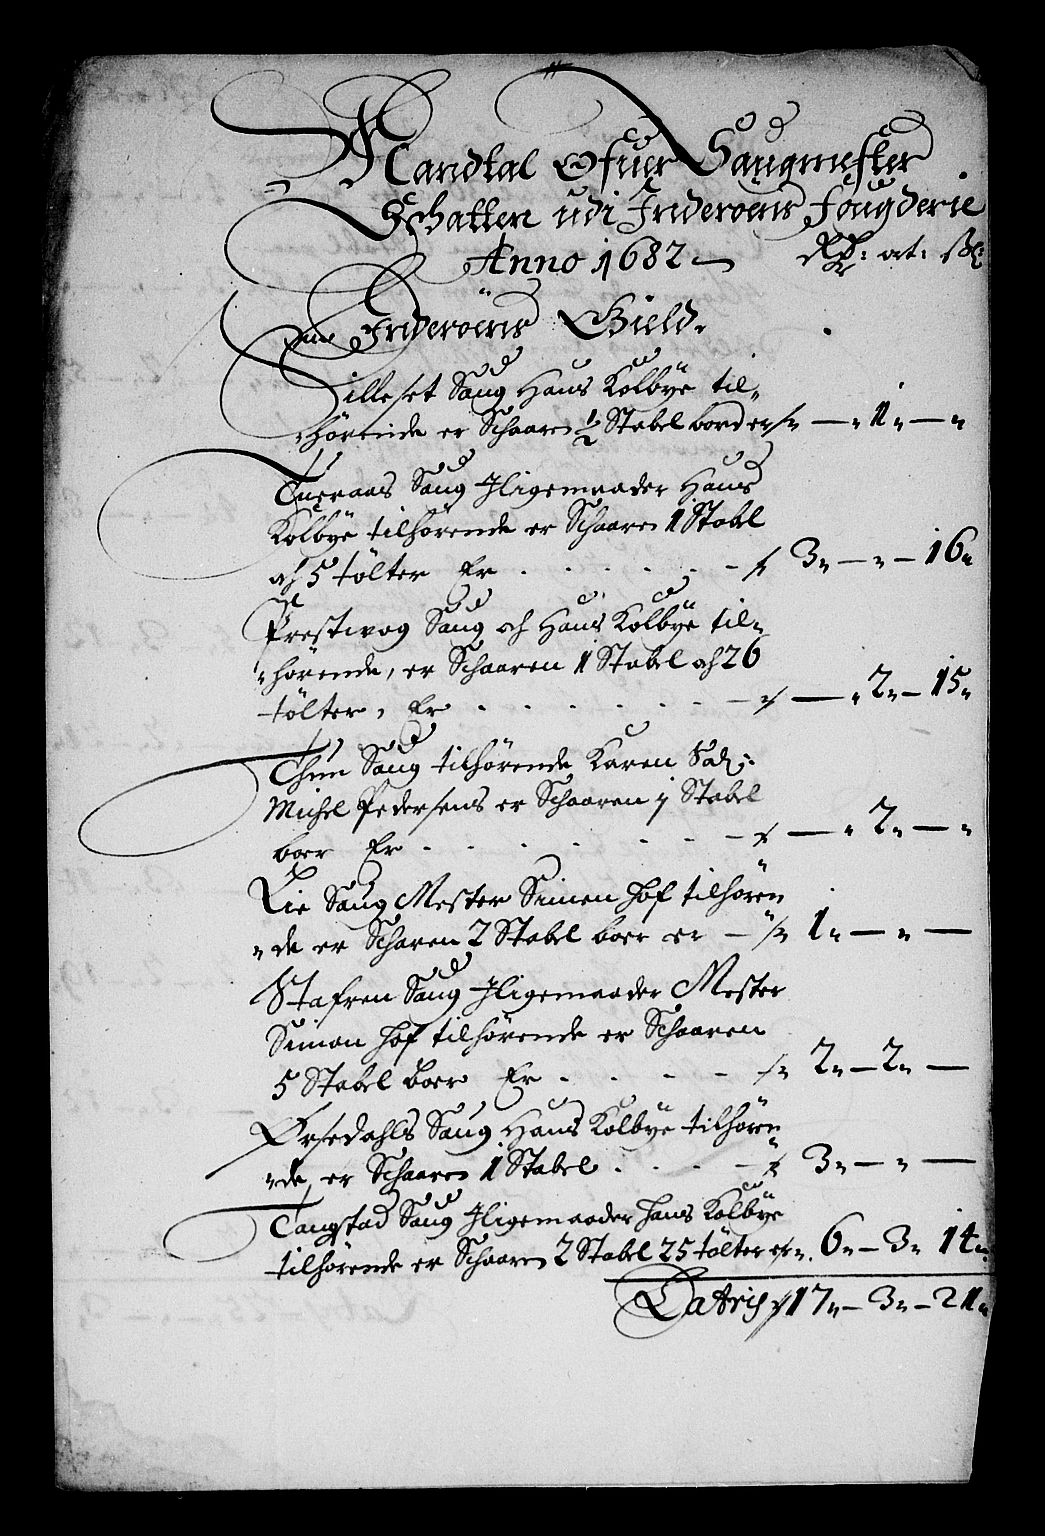 Mandtal Ofuer Saugmester
Schatten udi Inderøens Fougderie
Anno 1682 Rdr: ort: ß:
Inderøens Gield.
Hilleset Saug Hans Kolbÿe til„
„hørende er Schaaren ½ Stabel border — „ 1„ — „
Tueraas Saug Iligemaader Hans
Kolbÿe tilhørende er Schaaren 1 Stabel
och 5 tølter Er . . . . . 3„ — „ — 16„
Prestwog Saug och Hans Kolbÿe til„
„hørende, er Schaaren 1 Stabel och 26
tølter, Er . . . . . — „ 2„ — 15„
Thun Saug tilhørende Karen Sal:
Michel Pedersens er Schaaren 1 Stabel
boer Er . . . . . — „ 2„ — „
Lie Saug Mester Simon Hof tilhøren
„de er Scharen 2 Stabel boer er — 1„ — „ —
Stafren Saug Iligemaader Mester
Simon Hof tilhørende er Schaaren
5 Stabel boer Er . . . . 2„ — 2„ —
Ørsedahls Saug Hans Kolbÿe tilhøren
„de, er Schaaren 1 Stabel . . . . 3„ — „ —
Tangstad Saug Iligemaader Hans Kolbÿe
tilhørende er Schaaren 2 Stabel 25 tølter er 6„ — 3„ 14„
Lateris 17„ — 3„ — 21„